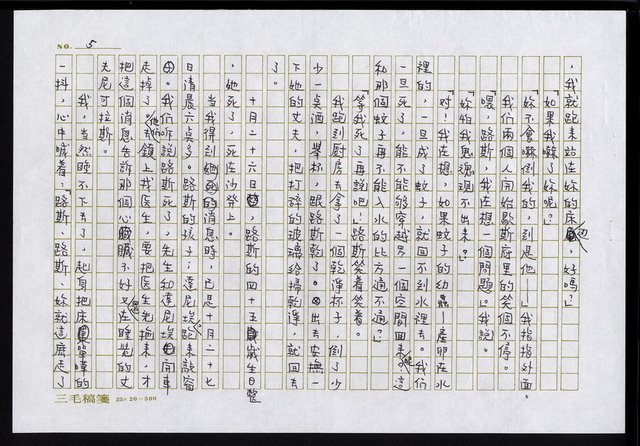 NO. 5
，我就跑来站在妳的床邊，好嗎？」
「如果我嚇了妳呢？」
「妳不會嚇倒我的，到是他」我指指外面。
我們兩個人開始歇斯底里的笑個不停。
「喂，路斯，我在想一個問題。」我說。
「妳怕我鬼魂現不出來？」
「對！我在想，如果蚊子的幼蟲產卵在水
裡的，一旦成了蚊子，就回不到水裡去。我們
一旦死了，能不能够穿越另一個空間回來？這
和那個蚊子再不能入水的比方通不通？」
「等我死了再說吧！」路斯笑着笑着。
我跑到厨房去拿了一個乾淨杯子，倒了少
少一桌酒，舉杯，跟路斯乾了。出去安撫一
下她的丈夫，把打碎的玻璃給掃乾淨，就回去
了。
十月二十六日，路斯的四十五歲生日整
，她死了，死在沙發上。
當我得到她死的消息時，已是十月二十七
日清晨六点多。路斯的孩子；達尼埃跑來敲窗
。我們聽說路斯死了，先生和達尼埃開車
走掉了，他們去鎮上找医生，要把医生先拖來，才
把這個消息告訴那個心臟不好又在睡覺的丈
夫尼可拉斯。
我，當然睡不下去了，起身把床單嘩的
一抖，心中喊着：「路斯、路斯、妳就這麼走了
三毛稿箋 25×20=500